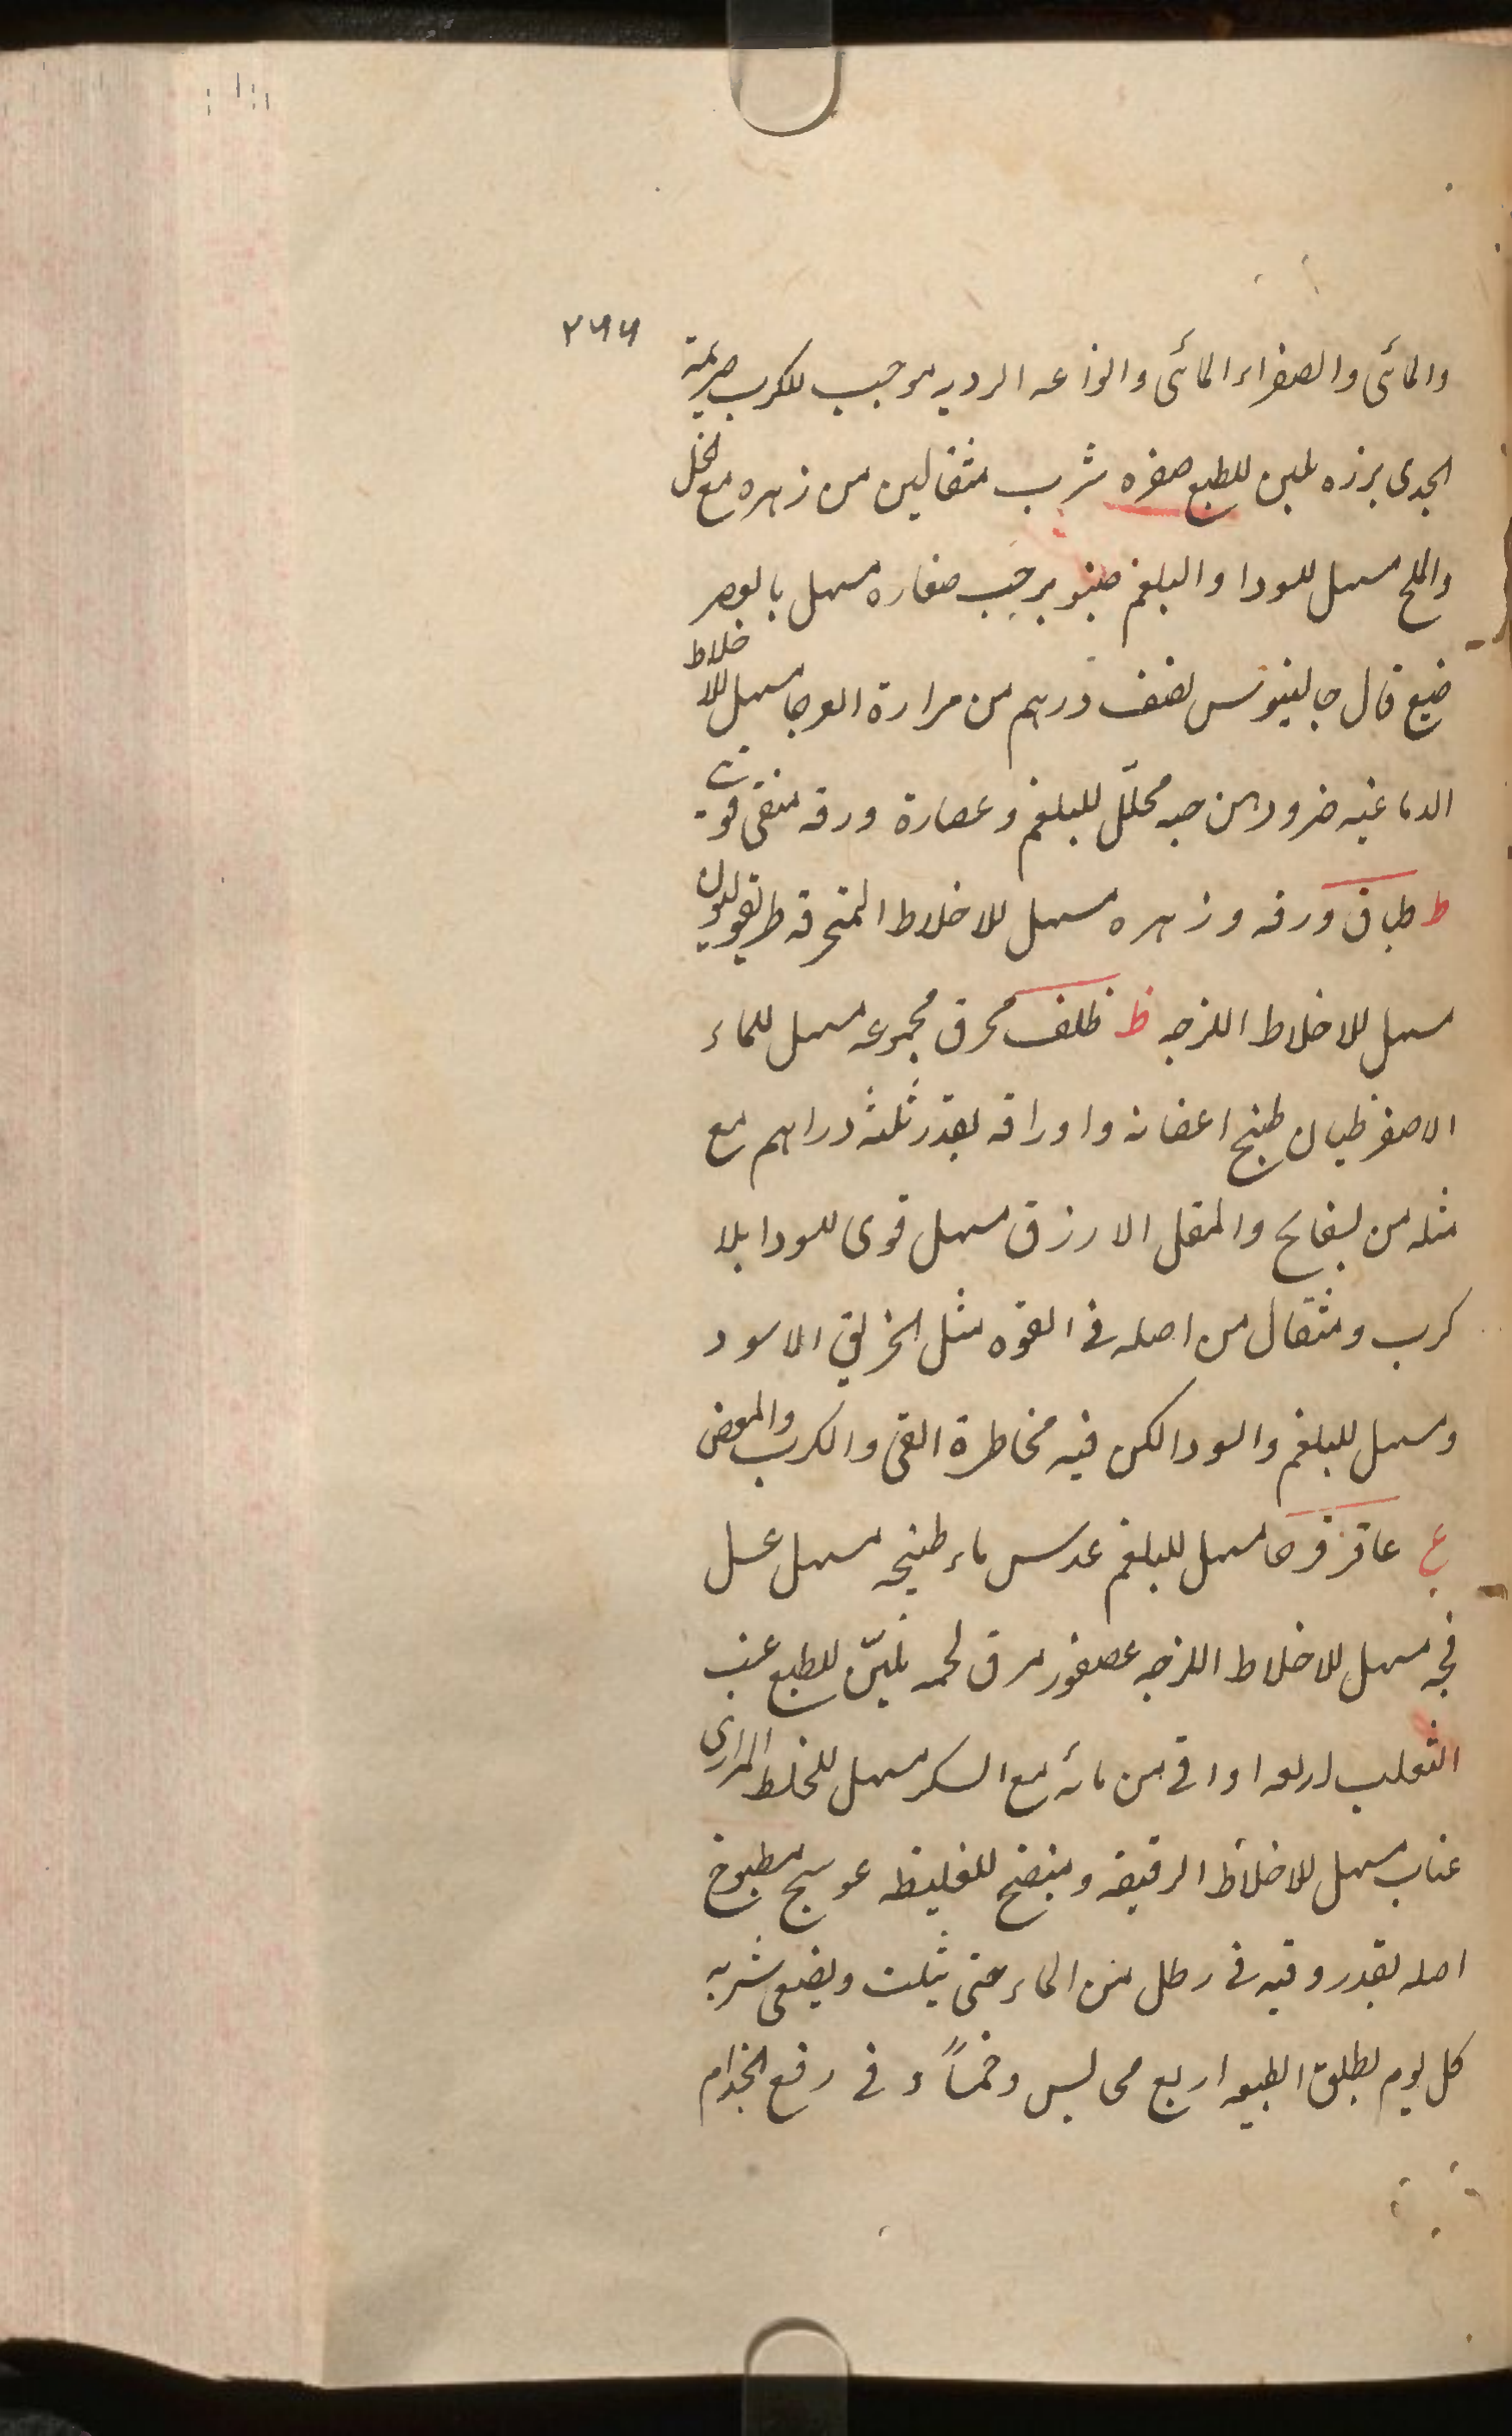 ٢٦٦
والمائى والصفراء المائى وانواعه الرديه موجب للكرب صريمة
الجدى برزه ملين للطبع صفره شرب مثقالين من زهره مع الخل
والملح مسهل للسودا والبلغم صنوبر حب صغاره مسهل
ضبع قال جالينوس نصف درهم من مرارة العرجا مسهل للاخلاط
الدماغيه ضرو دهن حبه محلّل للبلغم وعصارة ورقه منقى قوى
ط طباق ورقه وزهره مسهل للاخلاط المتحرقه طريفوليون
مسهل للاخلاط اللزجه ظ ظلف محرق مجموعه مسهل للماء
الاصفر ظيان طبخ اغصانه واوراقه بقدر ثلثه دراهم مع
مثله من بسفايج والمقل الازرق مسهل قوى للسودا بلا
كرب ومثقال من اصله فى القوه مثل الخربق الاسود
ومسهل للبلغم والسودا لكن فيه مخاطرة القئ والكرب والمغص
ع عاقرقرحا مسهل للبلغم عدس ماء طبيخه مسهل عسل
فجه مسهل للاخلاط اللزجه عصفور مرق لحمه مليّن للطبع عنب
الثعلب اربعه اواقى من مائه مع السكر مسهل للخلط المرارى
عناب مسهل للاخلاط الرقيقه ومنضج للغليظه عوسج مطبوخ
اصله بقدر وقيه فى رطل من الماء حتى يثلث ويصفى شربه
كل يوم يطلق الطبيعه اربع مجالس وخمساً و فى رفع الجذام